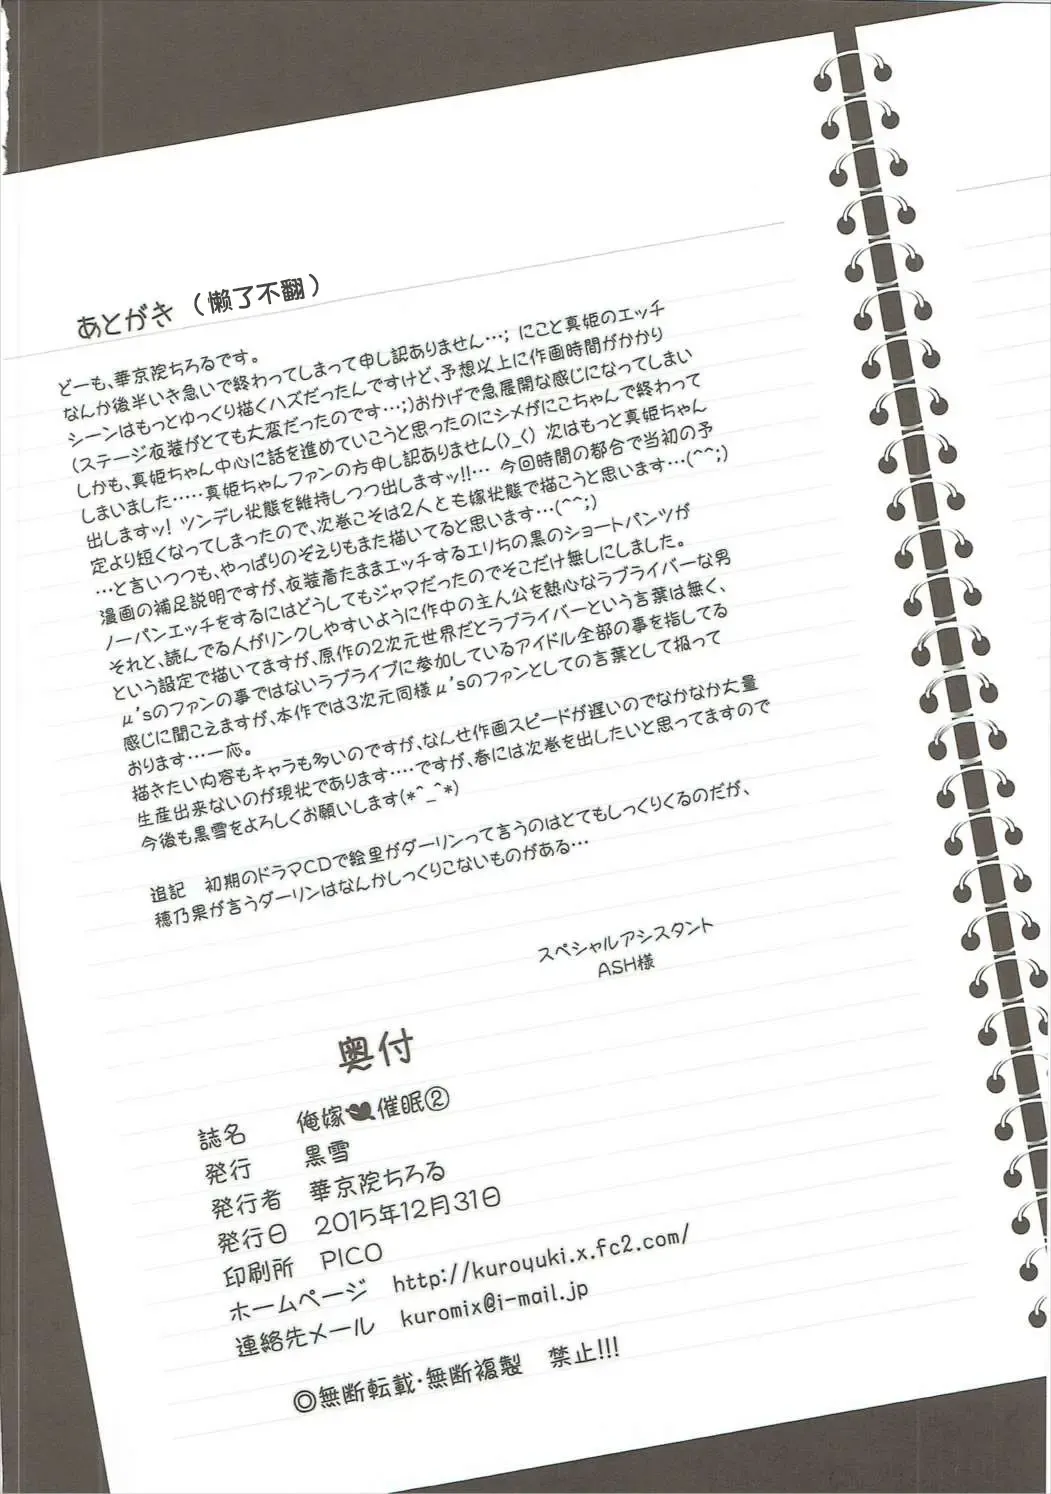 あとがき（懒了不翻）
どーも、華京院ちろるです。
なんか後半いき急いで終わってしまって申し訳ありません…; にこと真姫のエッチ
シーンはもっとゆっくり描くハズだったんですけど、予想以上に作画時間がかかり
(ステージ衣装がとても大変だったのです…;)おかげで急展開な感じになってしまい
しかも、真姫ちゃん中心に話を進めていこうと思ったのにシメがにこちゃんで終わって
しまいました……真姫ちゃんファンの方申し訳ありません(>_<) 次はもっと真姫ちゃん
出しますッ! ツンデレ状態を維持しつつ出しますッ!!… 今回時間の都合で当初の予
定より短くなってしまったので、次巻こそは2人とも嫁状態で描こうと思います…(^^;)
…と言いつつも、やっぱりのぞえりもまた描いてると思います…(^^;)
漫画の補足説明ですが、衣装着たままエッチするエリちの黒のショートパンツが
ノーパンエッチをするにはどうしてもジャマだったのでそこだけ無しにしました。
それと、読んでる人がリンクしやすいように作中の主人公を熱心なラブライバーな男
という設定で描いてますが、原作の2次元世界だとラブライバーという言葉は無く、
μ'sのファンの事ではないラブライブに参加しているアイドル全部の事を指してる
感じに聞こえますが、本作では3次元同様μ'sのファンとしての言葉として扱って
おります…一応。
描きたい内容もキャラも多いのですが、なんせ作画スピードが遅いのでなかなか大量
生産出来ないのが現状であります……ですが、春には次巻を出したいと思ってますので
今後も黒雪をよろしくお願いします(*^_^*)
追記　初期のドラマCDで絵里がダーリンって言うのはとてもしっくりくるのだが、
穂乃果が言うダーリンはなんかしっくりこないものがある…
スペシャルアシスタント
ASH様
奥付
誌名　俺嫁催眠②
発行　黒雪
発行者　華京院ちろる
発行日　2015年12月31日
印刷所　PICO
ホームページ　http://kuroyuki.x.fc2.com/
連絡先メール　kuromix@i-mail.jp
◎無断転載・無断複製　禁止!!!